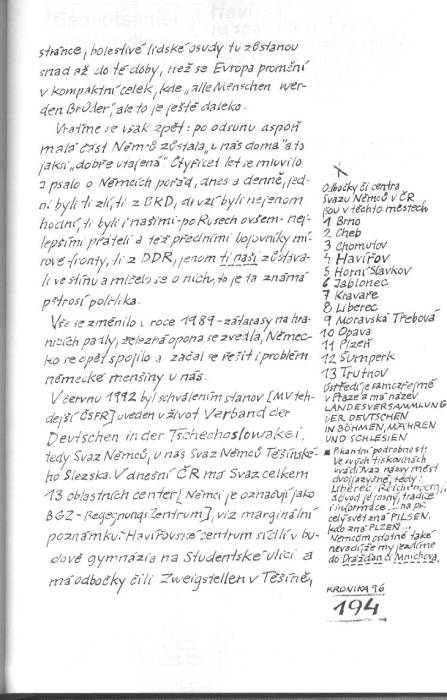 stránce, bolestivé lidské osudy tu zůstanou
snad až do té doby, než se Evropa promění
v kompaktní celek, kde „alle Menschen wer-
den Brüder", ale to je ještě daleko.
Vraťme se však zpět: po odsunu aspoň
malá část Němců zůstala „u nás doma" a to
jaksi „dobře utajená". Čtyřicet let se mluvilo
a psalo o Němcích pořád, dnes a denně, jed-
ni byli ti zlí, ti z BRD, druzí byli nejenom
hodní, ti byli i našimi - po Rusech ovšem - nej-
lepšími přáteli a též předními bojovníky mí-
rové fronty, ti z DDR, jenom ti naši zůstáva-
li ve stínu a mlčelo se o nich, to je ta známá
pštrosí politika.
Vše se změnilo i roce 1989 - zátarasy na hra-
nicích padly, železná opona se zvedla, Německ-
ko se opět spojilo a začal se řešit i problém
německé menšiny u nás.
V červnu 1992 byl schválením stanov [MV teh-
dejší ČSFR] uveden v život Verband der
Deutschen in der Tschechoslowakei,
tedy Svaz Němců, u nás Svaz Němců Těšínské-
ho Slezska. V dnešní ČR má Svaz celkem
13 oblastních center [Němci je označují jako
BGZ - Begegnungszentrum], viz marginální
poznámku. Havířovské centrum sídlí v bu-
dově gymnázia na Studentské ulici a
má odbočky čili Zweigstellen v Těšíně,
x
Odbočky či centra
Svazu Němců v ČR
jsou v těchto městech
1 Brno
2 Cheb
3 Chomutov
4 Havířov
5 Horní Slavkov
6 Jablonec
7 Kravaře
8 Liberec
9 Moravská Třebová
10 Opava
11 Plzeň
12 Šumperk
13 Trutnov
Ústředí je samozřejmě
v Praze a má název
LANDESVERSAMMLUNG
DER DEUTSCHEN
IN BÖHMEN, MÄHREN
UND SCHLESIEN
■ Pikantní podrobnost:
Ve svých tiskovinách
uvádí Svaz názvy měst
dvojjazyčně, tedy:
Liberec - Reichenberg,
důvod je jasný, tradice
i informace... na př.
celý svět zná PILSEN,
kdo zná PLZEŇ...
Němcům ostatně také
nevadí, že my jezdíme
do Drážďan či Mnichova.
KRONIKA 96
194